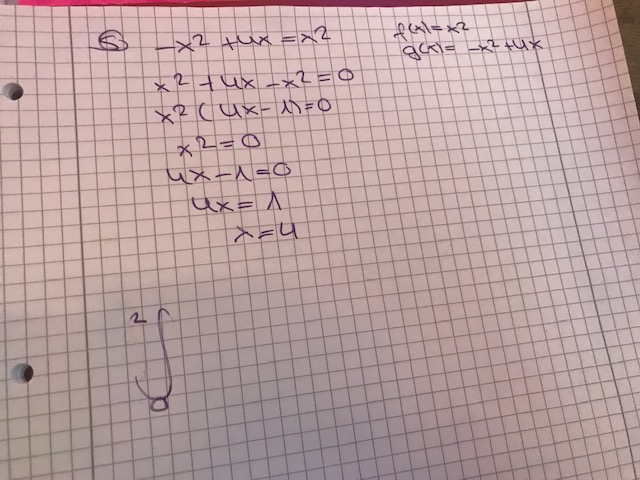 6 -x² + 4x = x²
f(x) = x²
g(x) = -x² + 4x
x² + 4x - x² = 0
x² (4x - 1) = 0
x² = 0
4x - 1 = 0
4x = 1
x = 4
2
∫
0